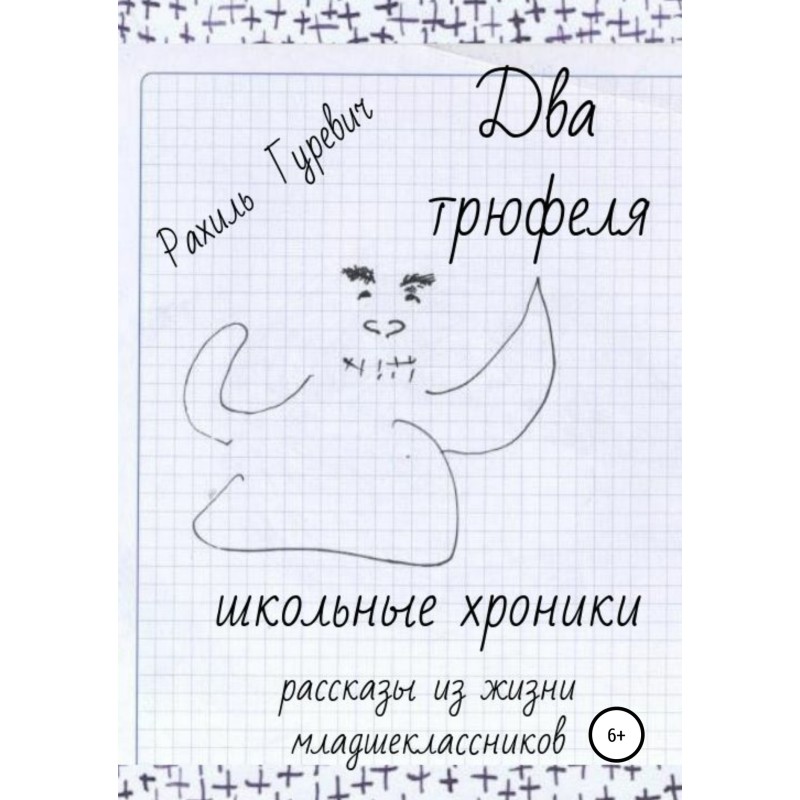 Рахиль Гуревич
Два
трюфеля
школьные хроники
рассказы из жизни
младшеклассников
6+